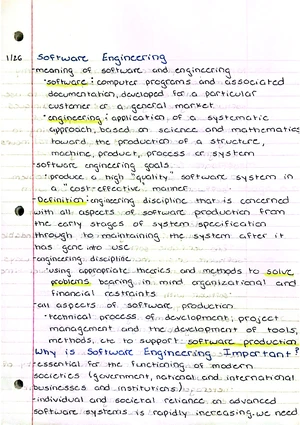 1/26 Software Engineering
-meaning of software and engineering
•software: computer programs and associated
documentation, developed for a particular
customer or a general market
•engineering: application of a systematic
approach, based on science and mathematics
toward the production of a structure,
machine, product, process or system
-software engineering goals
: produce a high "quality" software system in
a "cost-effective" manner
-Definition: engineering discipline that is concerned
with all aspects of software production from
the early stages of system specification
through to maintaining the system after it
has gone into use
-engineering discipline
•using appropriate theories and methods to solve
problems bearing in mind organizational and
financial restraints
-all aspects of software production
•technical process of development, project
management and the development of tools,
methods, etc to support software production
Why is Software Engineering Important?
-essential for the functioning of modern
societies (government, national and international
businesses and institutions)
-individual and societal reliance on advanced
software systems is rapidly increasing. we need